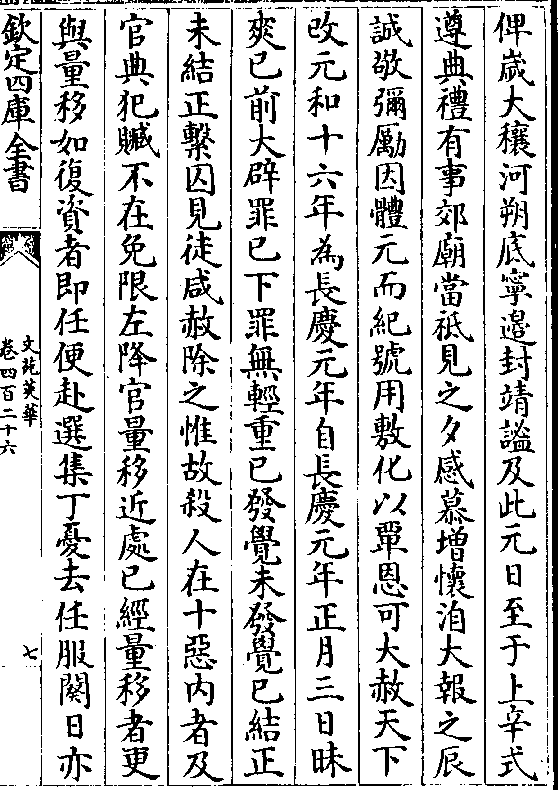 俾歲大穰河朔底寧邉封靖謐及此元日至于上辛式
遵典禮有事郊廟當祗見之夕感慕增懷洎大報之辰
誠敬彌勵因體元而紀號用敷化以覃恩可大赦天下
改元和十六年為長慶元年自長慶元年正月三日昧
爽已前大辟罪已下罪無輕重已發覺未發覺已結正
未結正繫囚見徒咸赦除之惟故殺人在十惡内者及
官典犯贓不在免限左降官量移近處已經量移者更
與量移如復資者即任便赴選集丁憂去任服闋日亦
欽定四庫全書
文苑英華
卷四百二十六
七